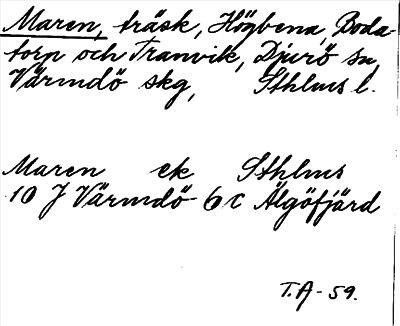 Maren, träsk, Högbena, Boda-
torp och Tranvik, Djurö sn,
Värmdö skg, Sthlms l.
Maren ek Sthlms
10 J Värmdö 6 c Älgöfjärd
T.A - 59.